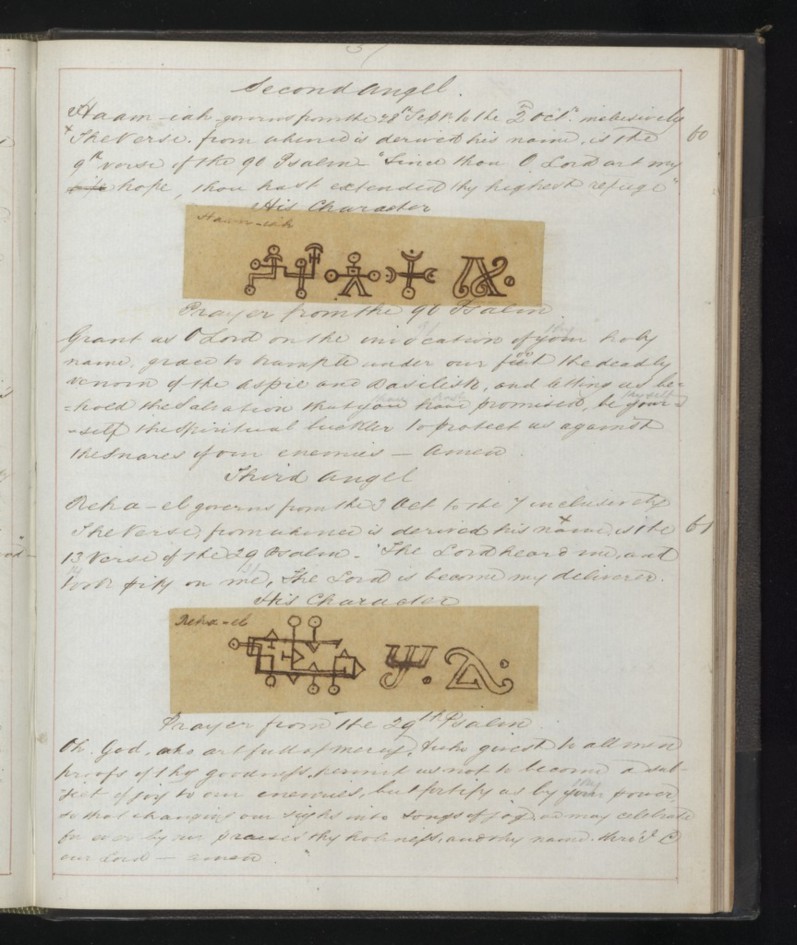 Second Angel.
Haam-iah governs from the 28th Sept to the 2 Oct inclusively 60
The Verse from whence is derived his name, is the
9th verse of the 90 Psalm - "Since thou O Lord art my
hope, thou hast extended thy highest refuge"
His Character
Haam-iah
Prayer from the 90 Psalm
Grant us O Lord on the invocation of your thy holy
name, grace to trample under our feet the deadly
venom of the aspic and Basilisk, and letting us be-
=hold the Salvation that you have promised, be your=
thou hast thyself
=self the Spiritual buckler to protect us against
the snares of our enemies — Amen
Third Angel
Reha-el governs from the 3 Oct to the 7 inclusively
The Verse from whence is derived his name, is the 61
13 Verse of the 29 Psalm - "The Lord heard me, and
took pity on me, The Lord is become my deliverer.
His Character
Reha-el
Prayer from the 29th Psalm
Oh God, who art full of mercy, & who givest to all men
proofs of thy goodness, permit us not to become a sub-
-ject of joy to our enemies, but fortify us by your thy power
so that changing our sighs into songs of joy, we may celebrate
for ever by our praises thy holiness, and thy name. thro' J C
our Lord — amen